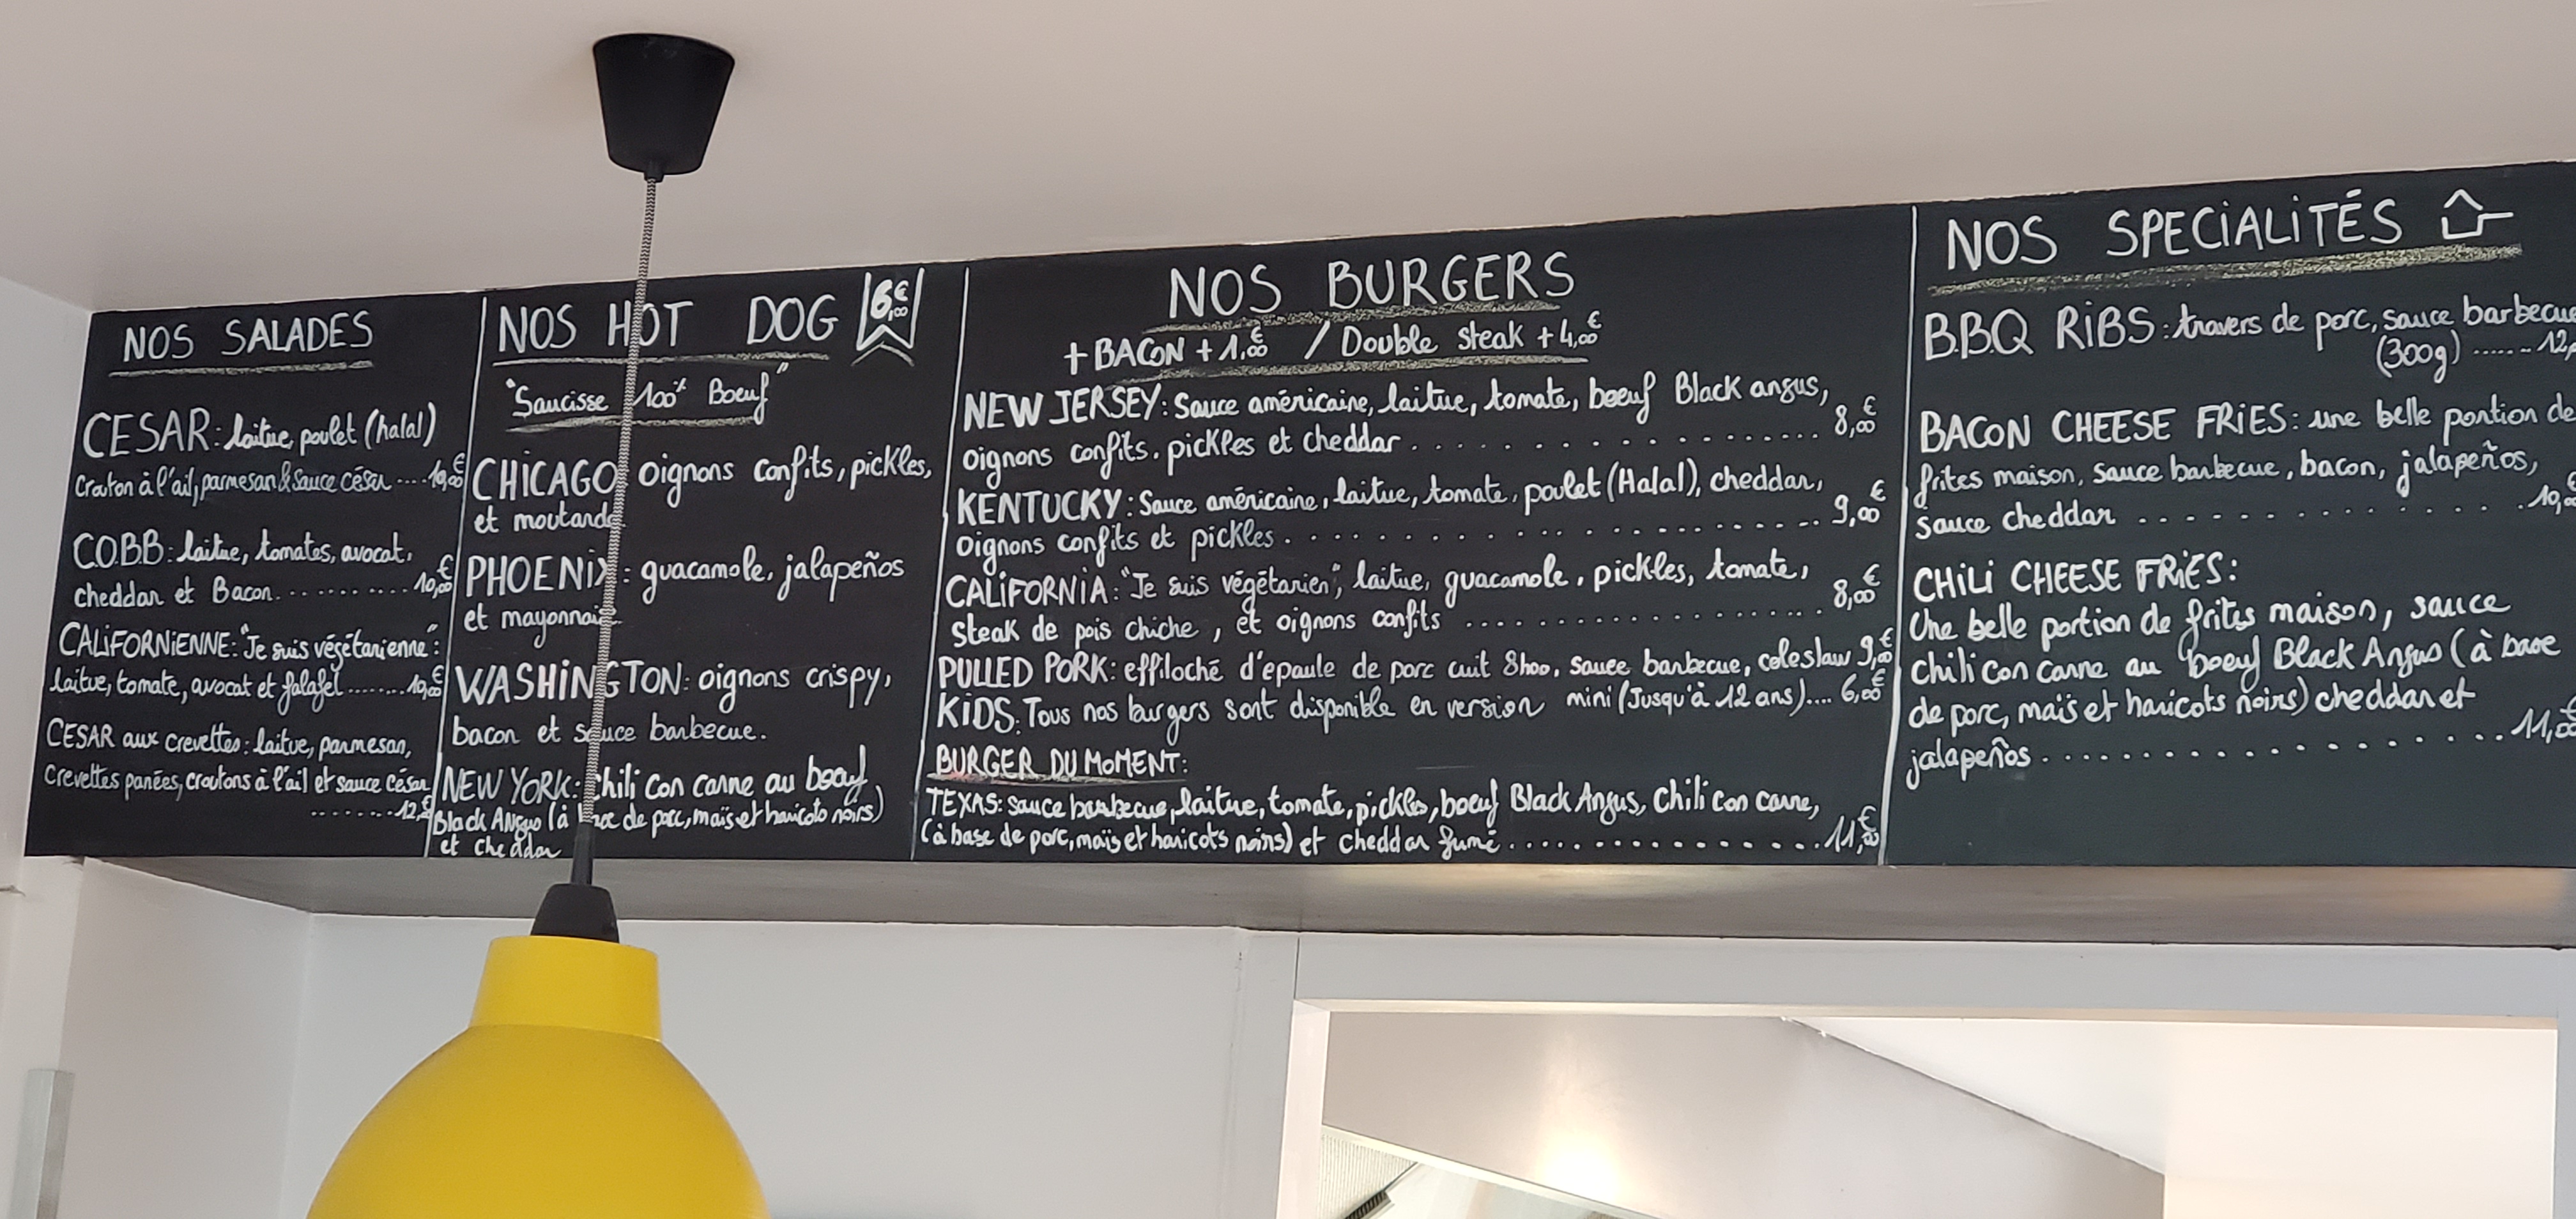 NOS SALADES
CESAR: laitue, poulet (halal)
Crouton à l'ail, parmesan & sauce césar .... 10,00€
COBB: laitue, tomates, avocat,
cheddar et Bacon.......... 10,00€
CALIFORNIENNE: "Je suis végétarienne":
laitue, tomate, avocat et falafel ....... 10,00€
CESAR aux crevettes: laitue, parmesan,
Crevettes panées, croutons à l'ail et sauce césar
........12,€
NOS HOT DOG 6,00€
"Saucisse 100% Boeuf"
CHICAGO oignons confits, pickles,
et moutarde
PHOENIX: guacamole, jalapeños
et mayonnaise
WASHINGTON: oignons crispy,
bacon et sauce barbecue.
NEW YORK: Chili con carne au boeuf
Black Angus (à base de porc, maïs et haricots noirs)
et cheddar
NOS BURGERS
+ BACON + 1,00€ / Double steak + 4,00€
NEW JERSEY: Sauce américaine, laitue, tomate, boeuf Black angus,
oignons confits, pickles et cheddar .................... 8,00€
KENTUCKY: Sauce américaine, laitue, tomate, poulet (Halal), cheddar,
Oignons confits et pickles .................... 9,00€
CALIFORNIA: "Je suis végétarien", laitue, guacamole, pickles, tomate,
Steak de pois chiche, et oignons confits ................ 8,00€
PULLED PORK: effiloché d'epaule de porc cuit 8h00, sauce barbecue, coleslaw 9,00€
KIDS: Tous nos burgers sont disponible en version mini (Jusqu'à 12 ans).... 6,00€
BURGER DU MOMENT:
TEXAS: sauce barbecue, laitue, tomate, pickles, boeuf Black Angus, Chili con carne,
(à base de porc, maïs et haricots noirs) et cheddar fumé ................ 11,00€
NOS SPECIALITÉS
B.B.Q RIBS: travers de porc, sauce barbecue
(300g) ....... 12,
BACON CHEESE FRIES: une belle portion de
frites maison, sauce barbecue, bacon, jalapeños,
sauce cheddar ............... 10,00
CHILI CHEESE FRIES:
Une belle portion de frites maison, sauce
chili con carne au boeuf Black Angus (à base
de porc, maïs et haricots noirs) cheddar et
jalapeños .................. 11,00€